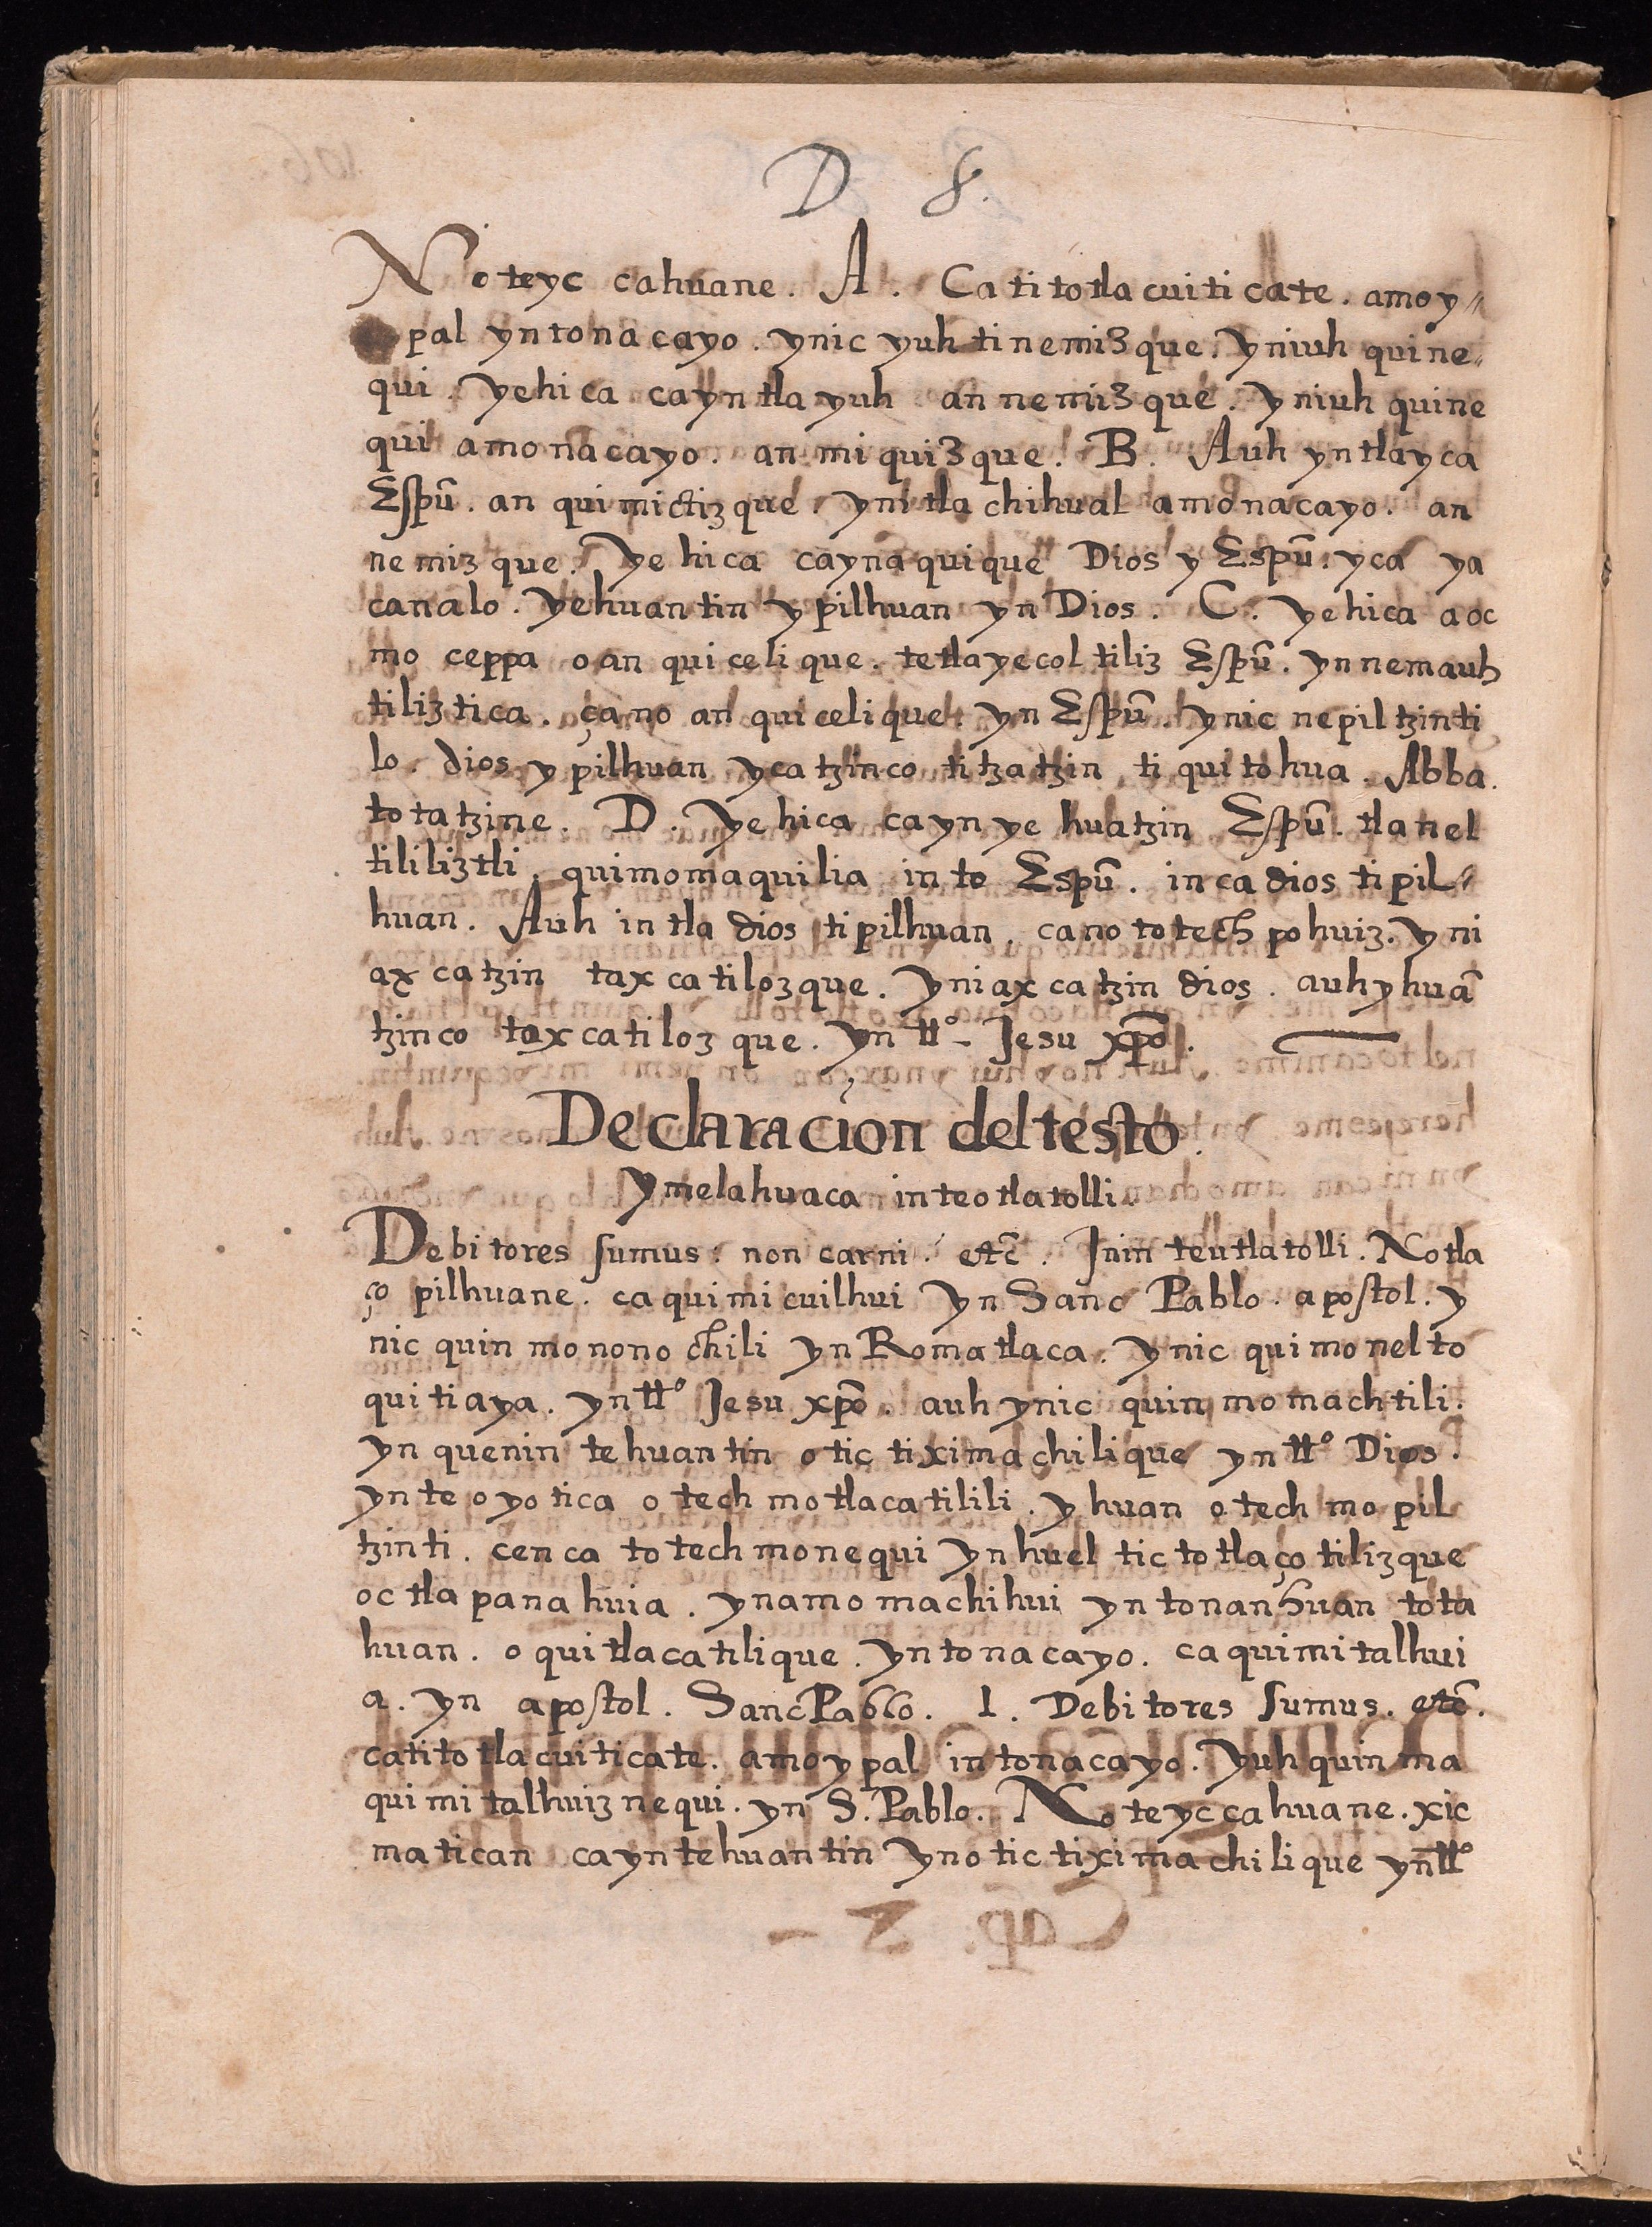 D 8.
Noteyc cahuane. A. Ca titotla cuiti cate. amoy=
pal yn tona cayo. ynic yuh tinemizque. yniuh quine=
qui. yehica cayn tla yuh an nemizque. yniuh quine
qui amonacayo. an miquizque. B. Auh yntlayca
Espũ. an quimictiz que. yni tla chihual amonacayo. an
nemiz que. ye hica caynaquique Dios y Espũ. yca ya
canalo. yehuantin ypilhuan yn Dios. C. yehica aoc
mo ceppa oan quicelique. tetlayecol tiliz Espũ. yn nemauh
tiliztica. ça no an quicelique. yn Espũ. ynic nepiltzinti
lo. dios ypilhuan ycatzinco titzatzin ti quitohua. Abba.
totatzine. D. ye hica cayn ye huatzin Espũ. tlanel
tililiztli. quimomaquilia in to Espũ. in ca dios tipil=
huan. Auh in tla dios tipilhuan, cano totech pohuiz. yni
axcatzin tax catilozque. yniaxcatzin dios. auh yhuã
tzinco taxcatiloz que. yn tt° - Jesu xp̃o.
Declaraçion del testo.
ymelahuaca inteotlatolli.
Debitores sumus: non carni. etc̃. Inin teutlatolli. Notla
ço pilhuane. caquimi cuilhui yn Sanc Pablo. apostol. y
nic quin monono chili yn Roma tlaca. ynic qui monelto
quitiaya. yn tt° Jesu xp̃o. auh ynic quin momachtili.
yn quenin tehuantin otic tiximachilique yn tt° Dios.
ynte oyo tica otech motlacatilili. yhuan otech mo pil
tzinti. cenca totech monequi yn huel tictotlaçotilizque
oc tlapanahuia. ynamo machihui yn tonanhuan tota
huan. oquitlacatilique. yn tonacayo. caquimitalhui
a. yn apostol. Sanc Pablo. 1. Debitores sumus. etc̃.
catito tlacuiticate. amoypal in tonacayo. yuhquin ma
quimitalhuiznequi. yn S. Pablo. Noteyccahuane. xic
matican cayntehuantin ynotic tiximachilique yn tt°